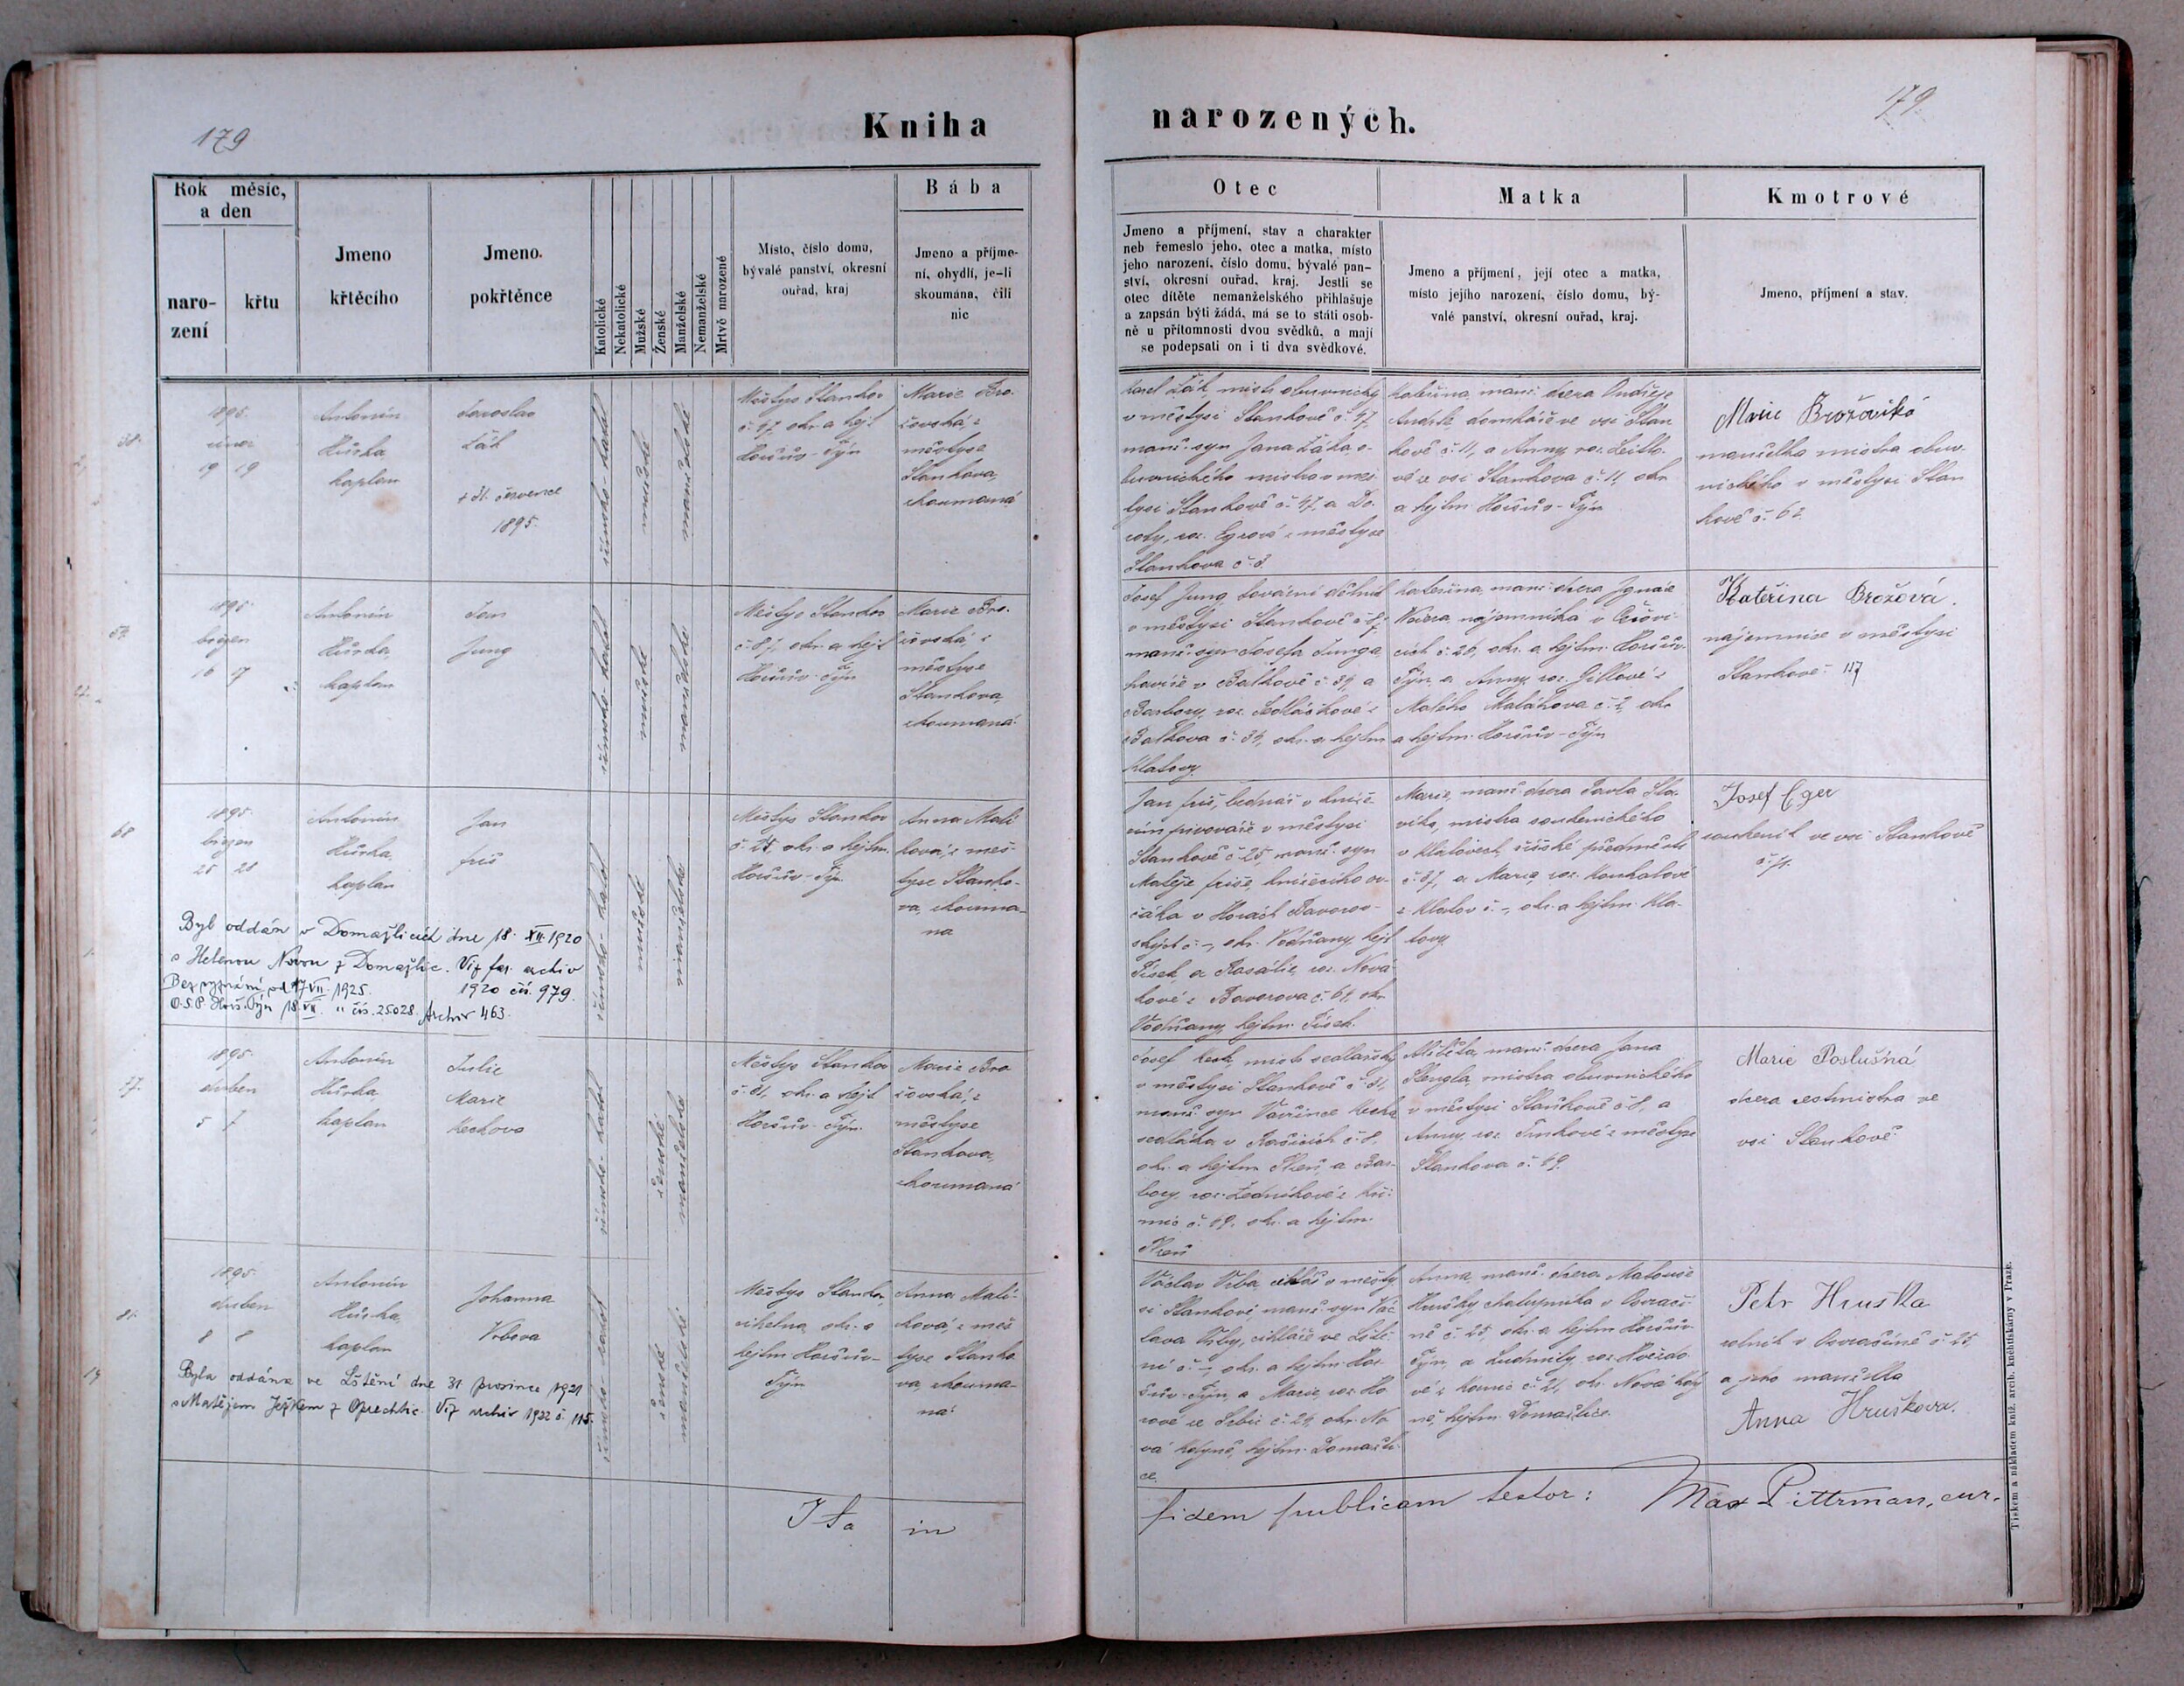 179
Kniha
narozených.
179.
Rok měsíc,
a den
naro-
zení
křtu
Jmeno
křtěcího
Jmeno.
pokřtěnce
Katolické
Nekatolické
Mužské
Ženské
Manželské
Nemanželské
Mrtvě narozené
Místo, číslo domu,
bývalé panství, okresní
ouřad, kraj
Bába
Jmeno a příjme-
ní, obydlí, je-li
skoumána, čili
nic
Otec
Jmeno a příjmení, stav a charakter
neb řemeslo jeho, otec a matka, místo
jeho narození, číslo domu, bývalé pan-
ství, okresní ouřad, kraj. Jestli se
otec dítěte nemanželského přihlašuje
a zapsán býti žádá, má se to státi osob-
ně u přítomnosti dvou svědků, a mají
se podepsati on i ti dva svědkové.
Matka
Jmeno a příjmení, její otec a matka,
místo jejího narození, číslo domu, bý-
valé panství, okresní ouřad, kraj.
Kmotrové
Jmeno, příjmení a stav.
1895.
únor
19 19
Antonín
Hůrka
kaplan
Jaroslav
Žák
+ 31. července
1895.
římsko-katol
mužské
manželské
Městys Stankov
č. 47, okr. a hejt
Horšův-Týn
Marie Bro-
žovská z
městyse
Stankova,
zkoumaná
Karel Žák, mistr obuvnický
v městysi Stankově č. 47,
manž. syn Jana Žáka o-
buvnického mistra v měs
tysi Stankově č. 47, a Do-
roty, roz. Egrové z městyse
Stankova č. 3.
Kateřina, manž. dcera Ondřeje
domkáře ve vsi Stan
kově č. 11, a Anny, roz.
vé ze vsi Stankova č. 11, okr
a hejtm. Horšův-Týn
Marie Brožovská
manželka mistra obuv-
nického v městysi Stan
kově č. 62.
1895.
březen
16 17
Antonín
Hůrka,
kaplan
Jan
Jung
římsko-katol
mužské
manželské
Městys Stankov
č. 87, okr. a hejt
Horšův-Týn
Marie Bro-
žovská z
městyse
Stankova,
zkoumaná
Josef Jung, tovární dělník
v městysi Stankově č. 87,
manž. syn Josefa Junga,
v Balkově č. 39, a
Barbory, roz. Sedláčkové z
Balkova č. 34, okr. a hejtm
Klatovy.
Kateřina, manž. dcera Ignáce
nájemníka v
č. 26, okr. a hejtm. Horšův-
Týn, a Anny, roz. z
Malého Malahova č. 2, okr
a hejtm. Horšův-Týn
Kateřina Brožová.
nájemnice v městysi
Stankově 117
68
1895.
březen
25 28
Antonín
Hůrka,
kaplan
Jan
Friš
římsko-katol
mužské
manželské
Městys Stankov
č. 25, okr. a hejtm.
Horšův-Týn
Anna Malí
ková, z měs
tyse Stanko-
va, zkouma-
ná
Byl oddán v Domažlicích dne 18. XII. 1920
s Helenou Novou z Domažlic. Viz far. archiv
1920 čís. 979.
Bez vyznání od 17 VII. 1925.
O.S.P. Horš. Týn 18. VII. " čís. 25028. Archiv 463.
Jan Friš, bednář v kníže
cím pivováře v městysi
Stankově č. 25, manž. syn
Matěje Friše, knížecího ov-
čáka v Horách Bavorov-
ských č. -, okr. Vodňany, hejt
Písek, a Rosálie, roz. Nová-
kové z Bavorova č. 64, okr
Vodňany, hejtm. Písek.
Marie, manž. dcera Pavla Sla-
víka, mistra soukenického
v Klatovech, říšské předměstí
č. 87, a Marie, roz. Kouhalové
z Klatov č. -, okr. a hejtm. Kla-
tovy.
Josef Eger
soukeník ve vsi Stankově
1895.
duben
5 7
Antonín
Hůrka
kaplan
Julie
Marie
Kechova
římsko-katol
ženské
manželské
Městys Stankov
č. 31, okr. a hejt
Horšův-Týn.
Marie Bro
žovská, z
městyse
Stankova,
zkoumaná
Josef Kech, mistr sedlařský
v městysi Stankově č. 31,
manž. syn Vavřince Kecha
sedláka v č. 8,
okr. a hejtm. Plzeň a Bar-
bory, roz. z Kři-
mic č. 19, okr. a hejtm.
Plzeň
Alžběta, manž. dcera Jana
Stengla, mistra obuvnického
v městysi Stankově č. 8, a
Anny, roz. z městyse
Stankova č. 49.
Marie Poslušná
dcera cestmistra ve
vsi Stankově
1895.
duben
8 8
Antonín
Hůrka,
kaplan
Johanna
Vrbova
římsko-katol
ženské
manželské
Městys Stankov,
cihelna, okr. a
hejtm Horšův-
Týn
Anna Malí-
ková, z měs
tyse Stanko
va, zkouma-
ná
Byla oddána ve Lštění dne 31 prosince 1921
s Matějem Ježkem z Oprechtic. Viz archiv 1922 č. 115.
Václav Vrba, cihlář v městy
si Stankově, manž. syn Vác
lava Vrby, cihláře ve Lště-
ní č. -, okr. a hejtm. Hor
šův-Týn, a Marie, roz. Ho
rové ze Srbic č. 24, okr. No
vá Kdyně, hejtm. Domažli-
ce.
Anna, manž. dcera Matouše
Hrušky, chalupníka v Osvrači
ně č. 25, okr. a hejtm Horšův
Týn, a Ludmily, roz. Hvězdo
vé z č. 21, okr. Nová Kdy
ně, hejtm. Domažlice.
Petr Hruška
rolník v Osvračíně č. 25,
a jeho manželka
Anna Hrušková.
Ita in
fidem publicam testor: Max Pittrman, cur.
Tiskem a nákladem kníž. arcib. knihtiskárny v Praze.